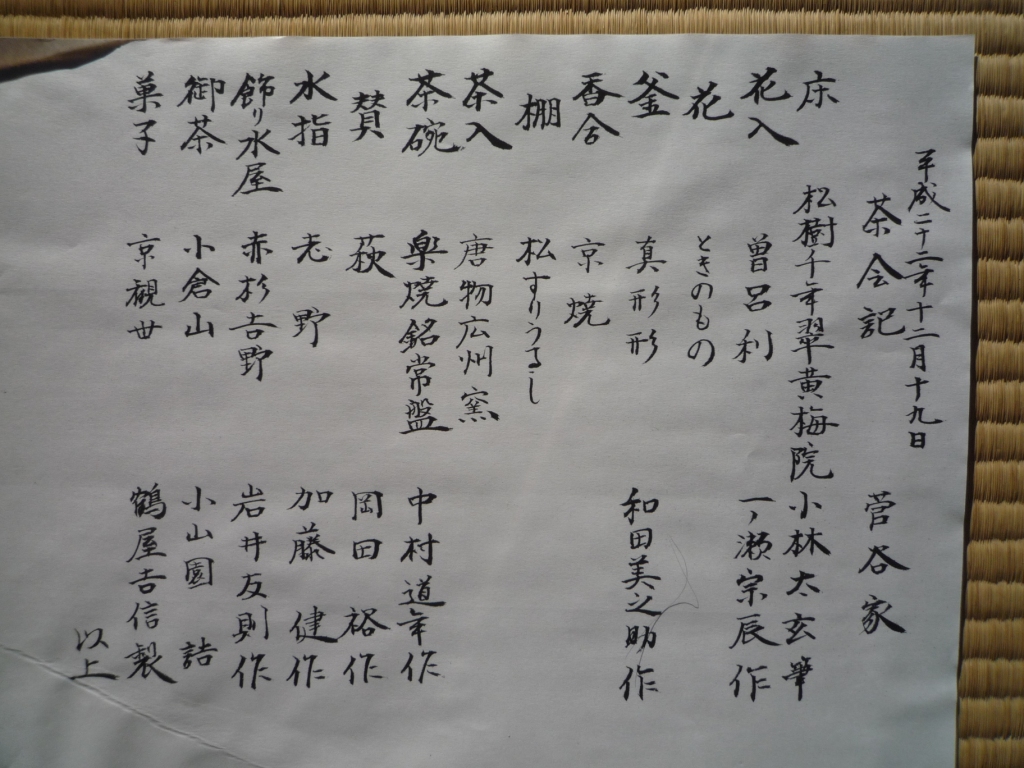 平成二十二年十二月十九日
茶会記 菅谷家
床 松樹千年翠黄梅院 小林太玄筆
花入 曽呂利 一ノ瀬宗辰作
花 ときのもの
釜 真形形 和田美之助作
香合 京焼
棚 松すりうるし
茶入 唐物広州窯
茶碗 楽焼銘常盤 中村道年作
賛 萩 岡田裕作
水指 志野 加藤健作
飾り水屋 赤杉吉野 岩井友則作
御茶 小倉山 小山園詰
菓子 京観世 鶴屋吉信製
以上